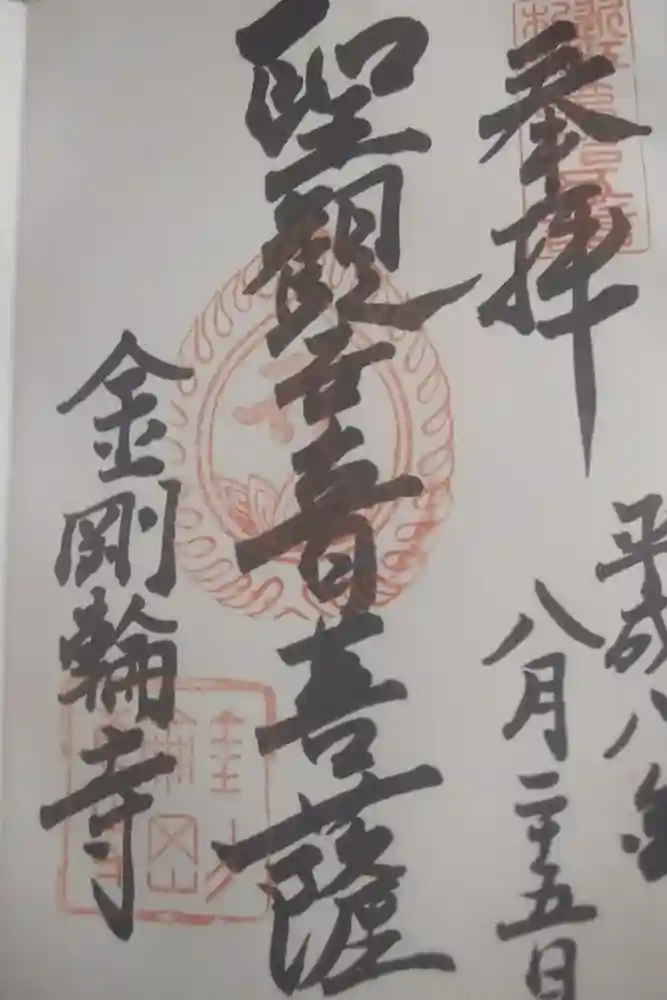 奉拝
平成八年
八月二十五日
聖觀世音菩薩
金剛輪寺